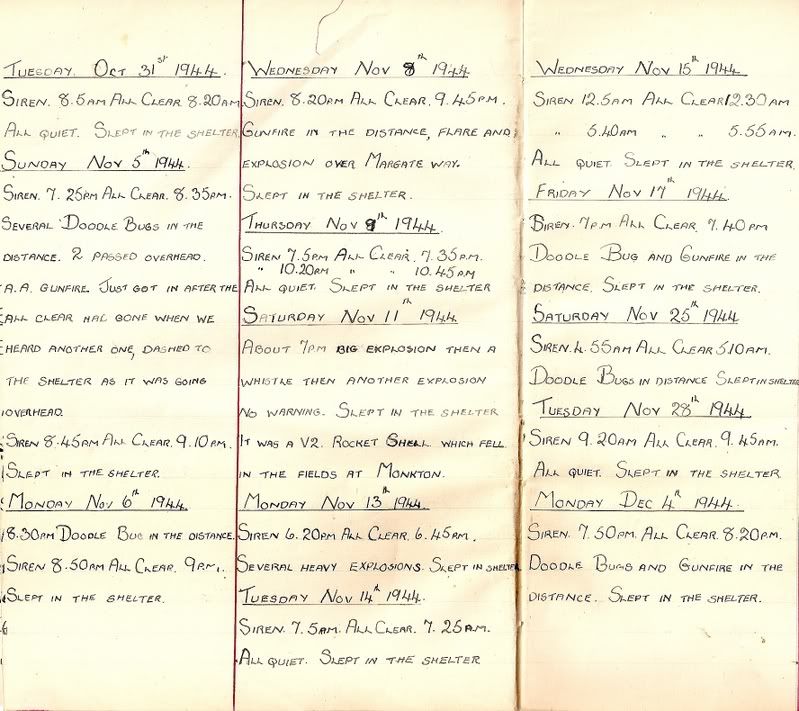 Tuesday. Oct 31st 1944.
Siren. 8.5am All Clear. 8.20am
All quiet. Slept in the shelter.
Sunday Nov 5th 1944.
Siren. 7.25pm All Clear. 8.35pm.
Several Doodle Bugs in the
distance. 2 passed overhead.
A.A. Gunfire. Just got in after the
All clear had gone when we
heard another one, dashed to
the shelter as it was going
overhead.
Siren 8.45am All Clear. 9.10pm.
Slept in the shelter.
Monday Nov 6th 1944.
8.30pm Doodle Bug in the distance.
Siren 8.50pm All Clear. 9pm.
Slept in the shelter.
Wednesday Nov 8th 1944
Siren. 8.20pm All Clear. 9.45pm.
Gunfire in the distance, flare and
explosion over Margate way.
Slept in the shelter.
Thursday Nov 9th 1944.
Siren 7.5pm All Clear. 7.35pm.
" 10.20pm " " 10.45pm
All quiet. Slept in the shelter
Saturday Nov 11th 1944
About 7pm big explosion then a
whistle then another explosion
no warning. Slept in the shelter
It was a V2. Rocket Shell which fell
in the fields at Monkton.
Monday Nov 13th 1944.
Siren 6.20pm All Clear. 6.45pm.
Several heavy explosions. Slept in shelter
Tuesday Nov 14th 1944.
Siren. 7.5am. All Clear. 7.25am.
All quiet. Slept in the shelter
Wednesday Nov 15th 1944
Siren 12.5am All Clear 12.30am
" 5.40am " " 5.55am.
All quiet. Slept in the shelter.
Friday Nov 17th 1944.
Siren. 7pm All Clear. 7.40pm
Doodle Bug and Gunfire in the
distance. Slept in the shelter.
Saturday Nov 25th 1944
Siren. 4.55am All Clear 5.10am.
Doodle Bugs in distance Slept in shelter
Tuesday Nov 28th 1944
Siren 9.20am All Clear. 9.45am.
All quiet. Slept in the shelter
Monday Dec 4th 1944.
Siren. 7.50pm. All Clear. 8.20pm.
Doodle Bugs and Gunfire in the
distance. Slept in the shelter.